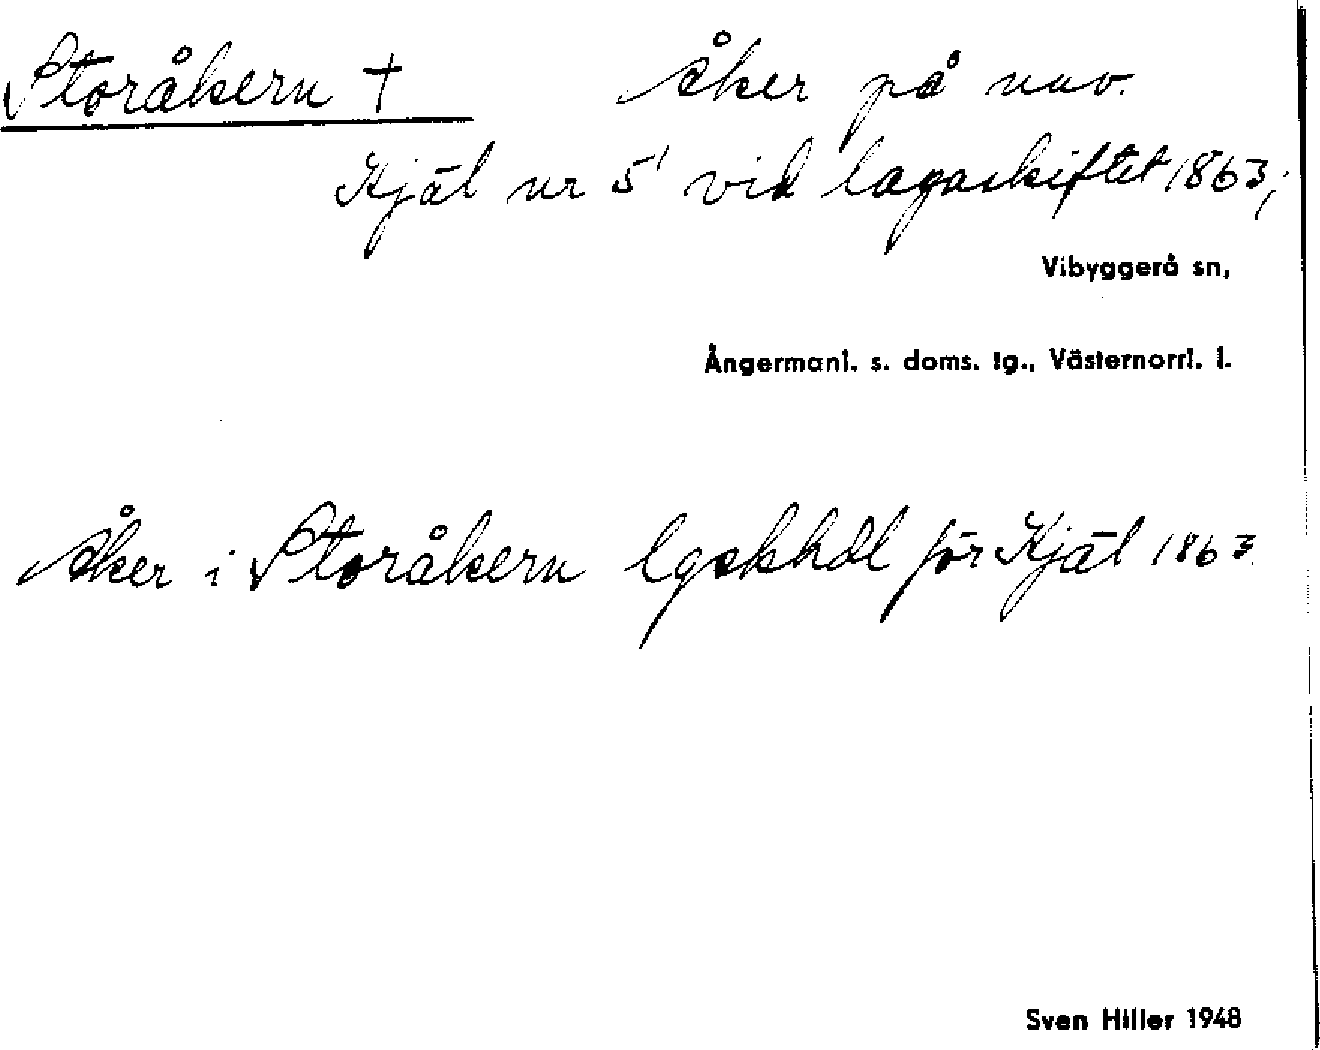 Storåkern † Åker på nuv.
Kjäl nr 5¹ vid lagaskiftet 1863;
Vibyggerå sn,
Ångermanl. s. doms. tg., Västernorrl. l.
Åker i Storåkern lgskhdl för Kjäl 1863
Sven Hiller 1948